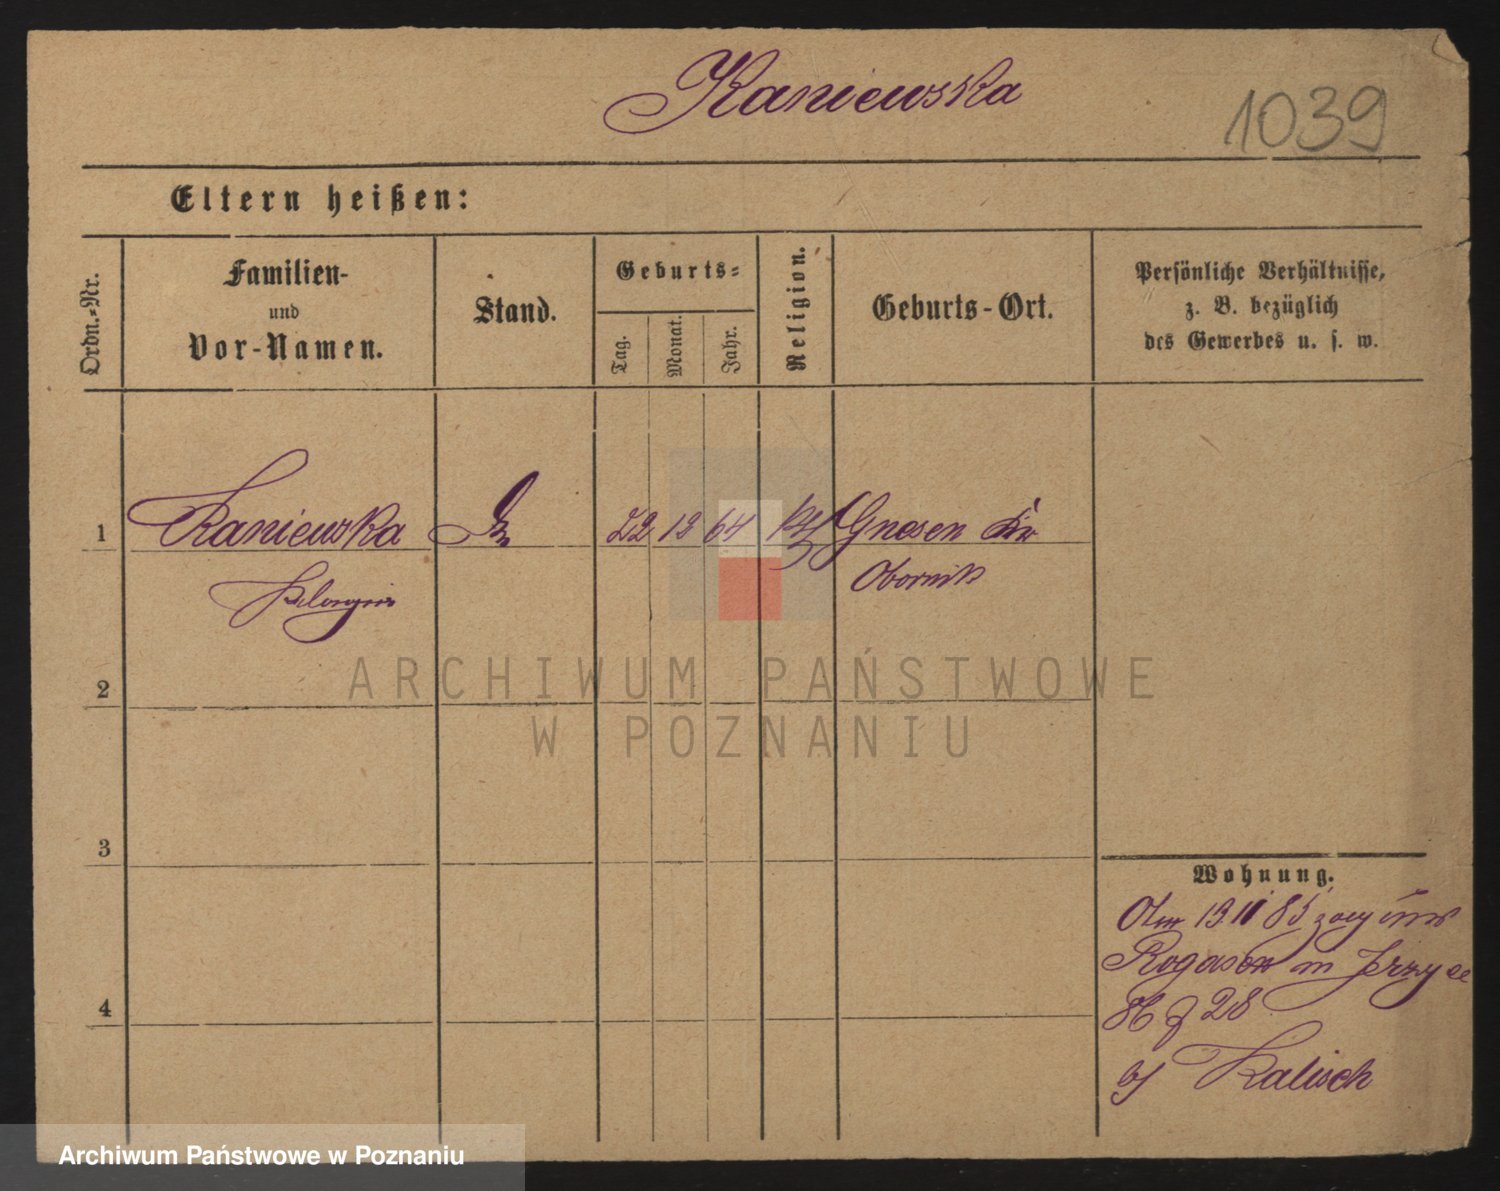 Kaniewska
1039
Eltern heißen:
Ordn.-Nr.
Familien-
und
Vor-Namen.
Stand.
Geburts-
Tag.
Monat.
Jahr.
Religion.
Geburts-Ort.
Persönliche Verhältnisse,
z. B. bezüglich
des Gewerbes u. s. w.
1
Kaniewska
22 12 64
Gnesen Kr
Obornik
2
3
4
Wohnung.
13 11 85 zog
Rogasen in Jerzyce
28
Kalisch
ARCHIWUM PAŃSTWOWE
W POZNANIU
Archiwum Państwowe w Poznaniu